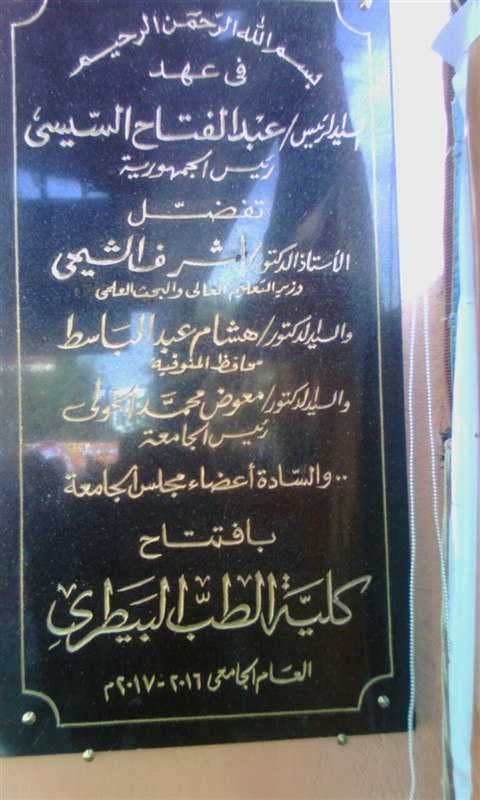 بسم الله الرحمن الرحيم
فى عهد
السيد الرئيس/ عبد الفتاح السيسى
رئيس الجمهورية
تفضل
الأستاذ الدكتور/ أشرف الشيحى
وزير التعليم العالى والبحث العلمى
والسيد الدكتور/ هشام عبد الباسط
محافظ المنوفية
والسيد الدكتور/ معوض محمد الخولى
رئيس الجامعة
.. والسادة أعضاء مجلس الجامعة
بافتتاح
كلية الطب البيطرى
العام الجامعى ٢٠١٦ - ٢٠١٧م